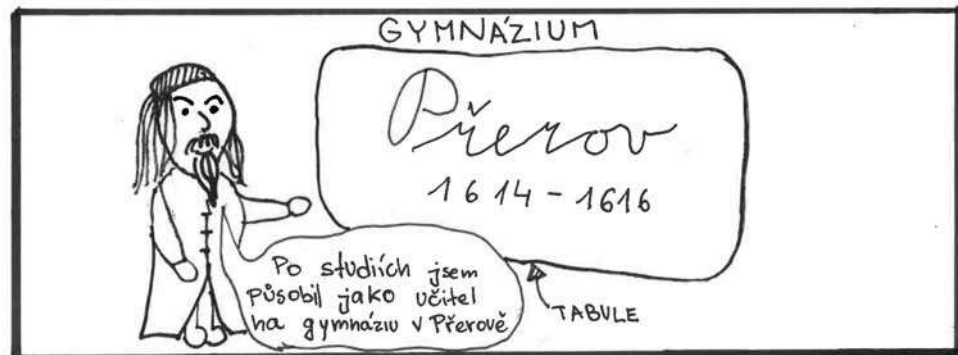 GYMNÁZIUM
Přerov
1614-1616
Po studiích jsem
působil jako učitel
na gymnáziu v Přerově
TABULE